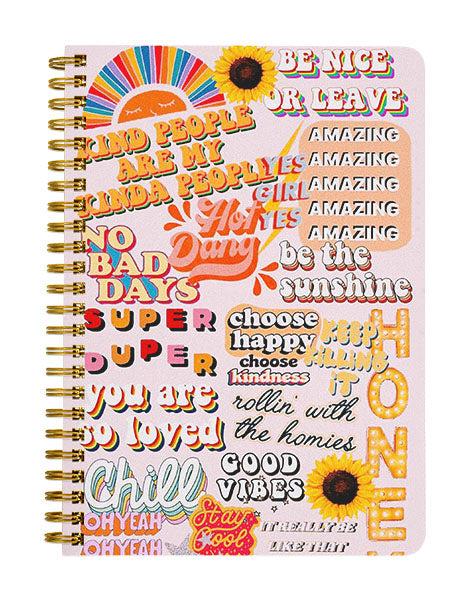 BE NICE
OR LEAVE
KIND PEOPLE
ARE MY
KINDA PEOPLE
YES
GIRL
YES
AMAZING
AMAZING
AMAZING
AMAZING
AMAZING
Hot
Dang
NO
BAD
DAYS
be the
sunshine
SUPER
DUPER
choose
happy
choose
kindness
KEEP
KILLING
IT
HONEY
you are
so loved
rollin' with
the homies
Chill
GOOD
VIBES
OH YEAH
OH YEAH
Stay
Cool
IT REALLY BE
LIKE THAT